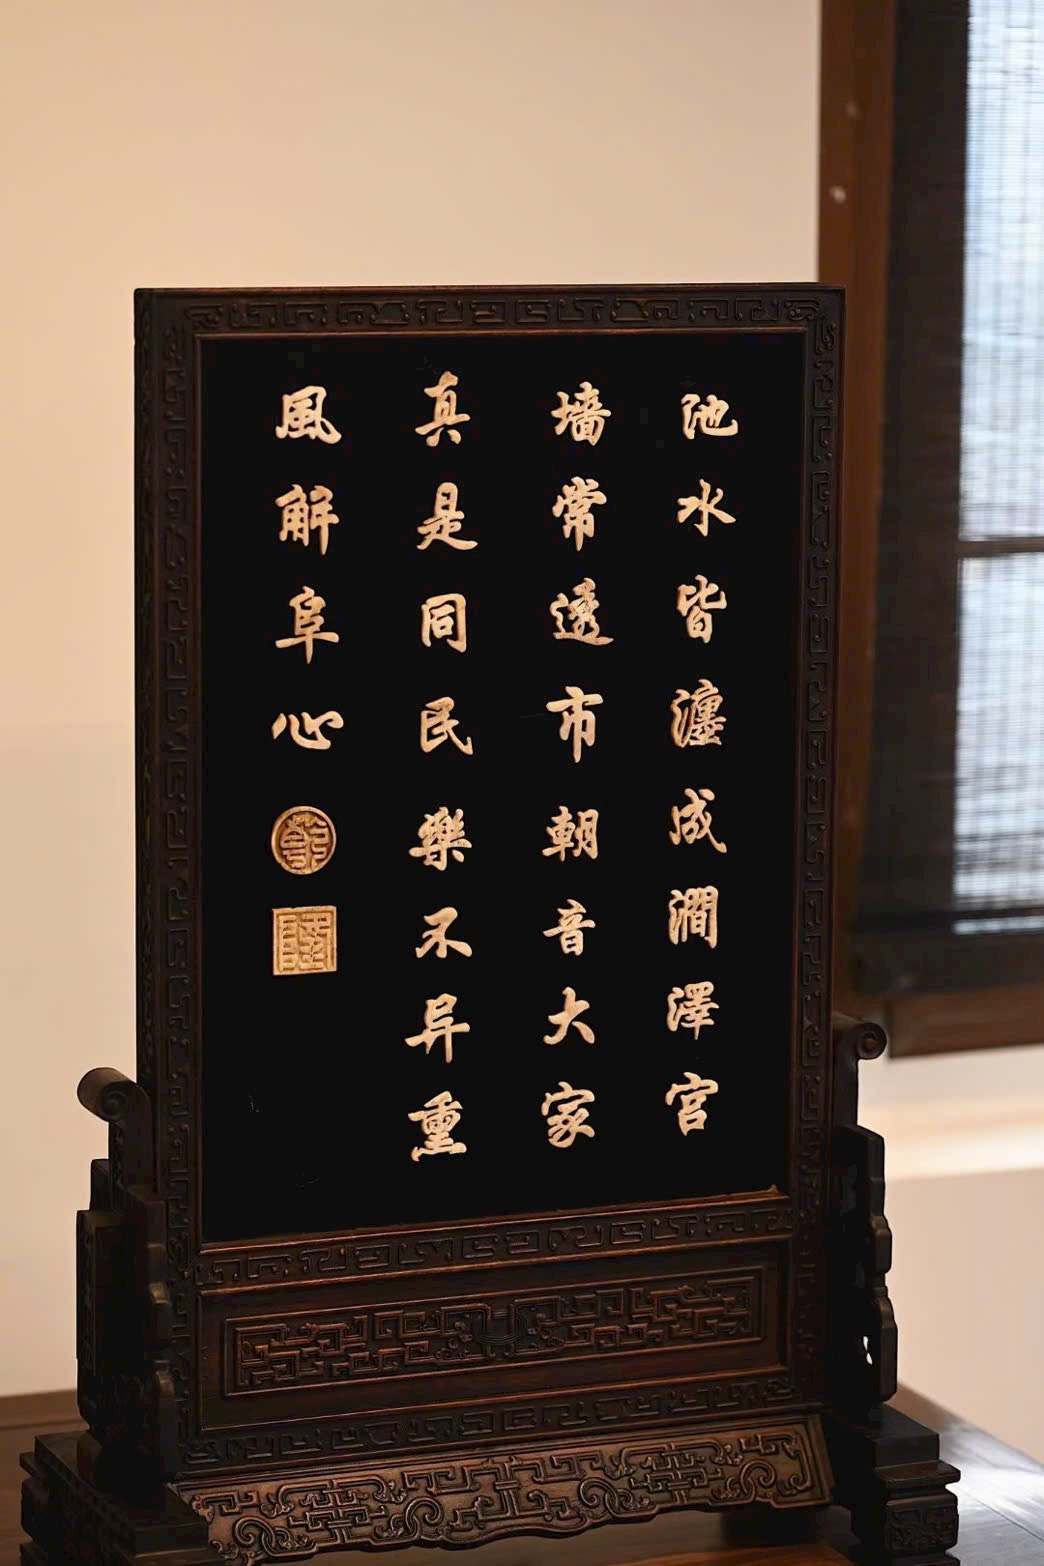 池水皆瀍成澗澤宮
墻常透市朝音大家
真是同民樂不异重
風解阜心